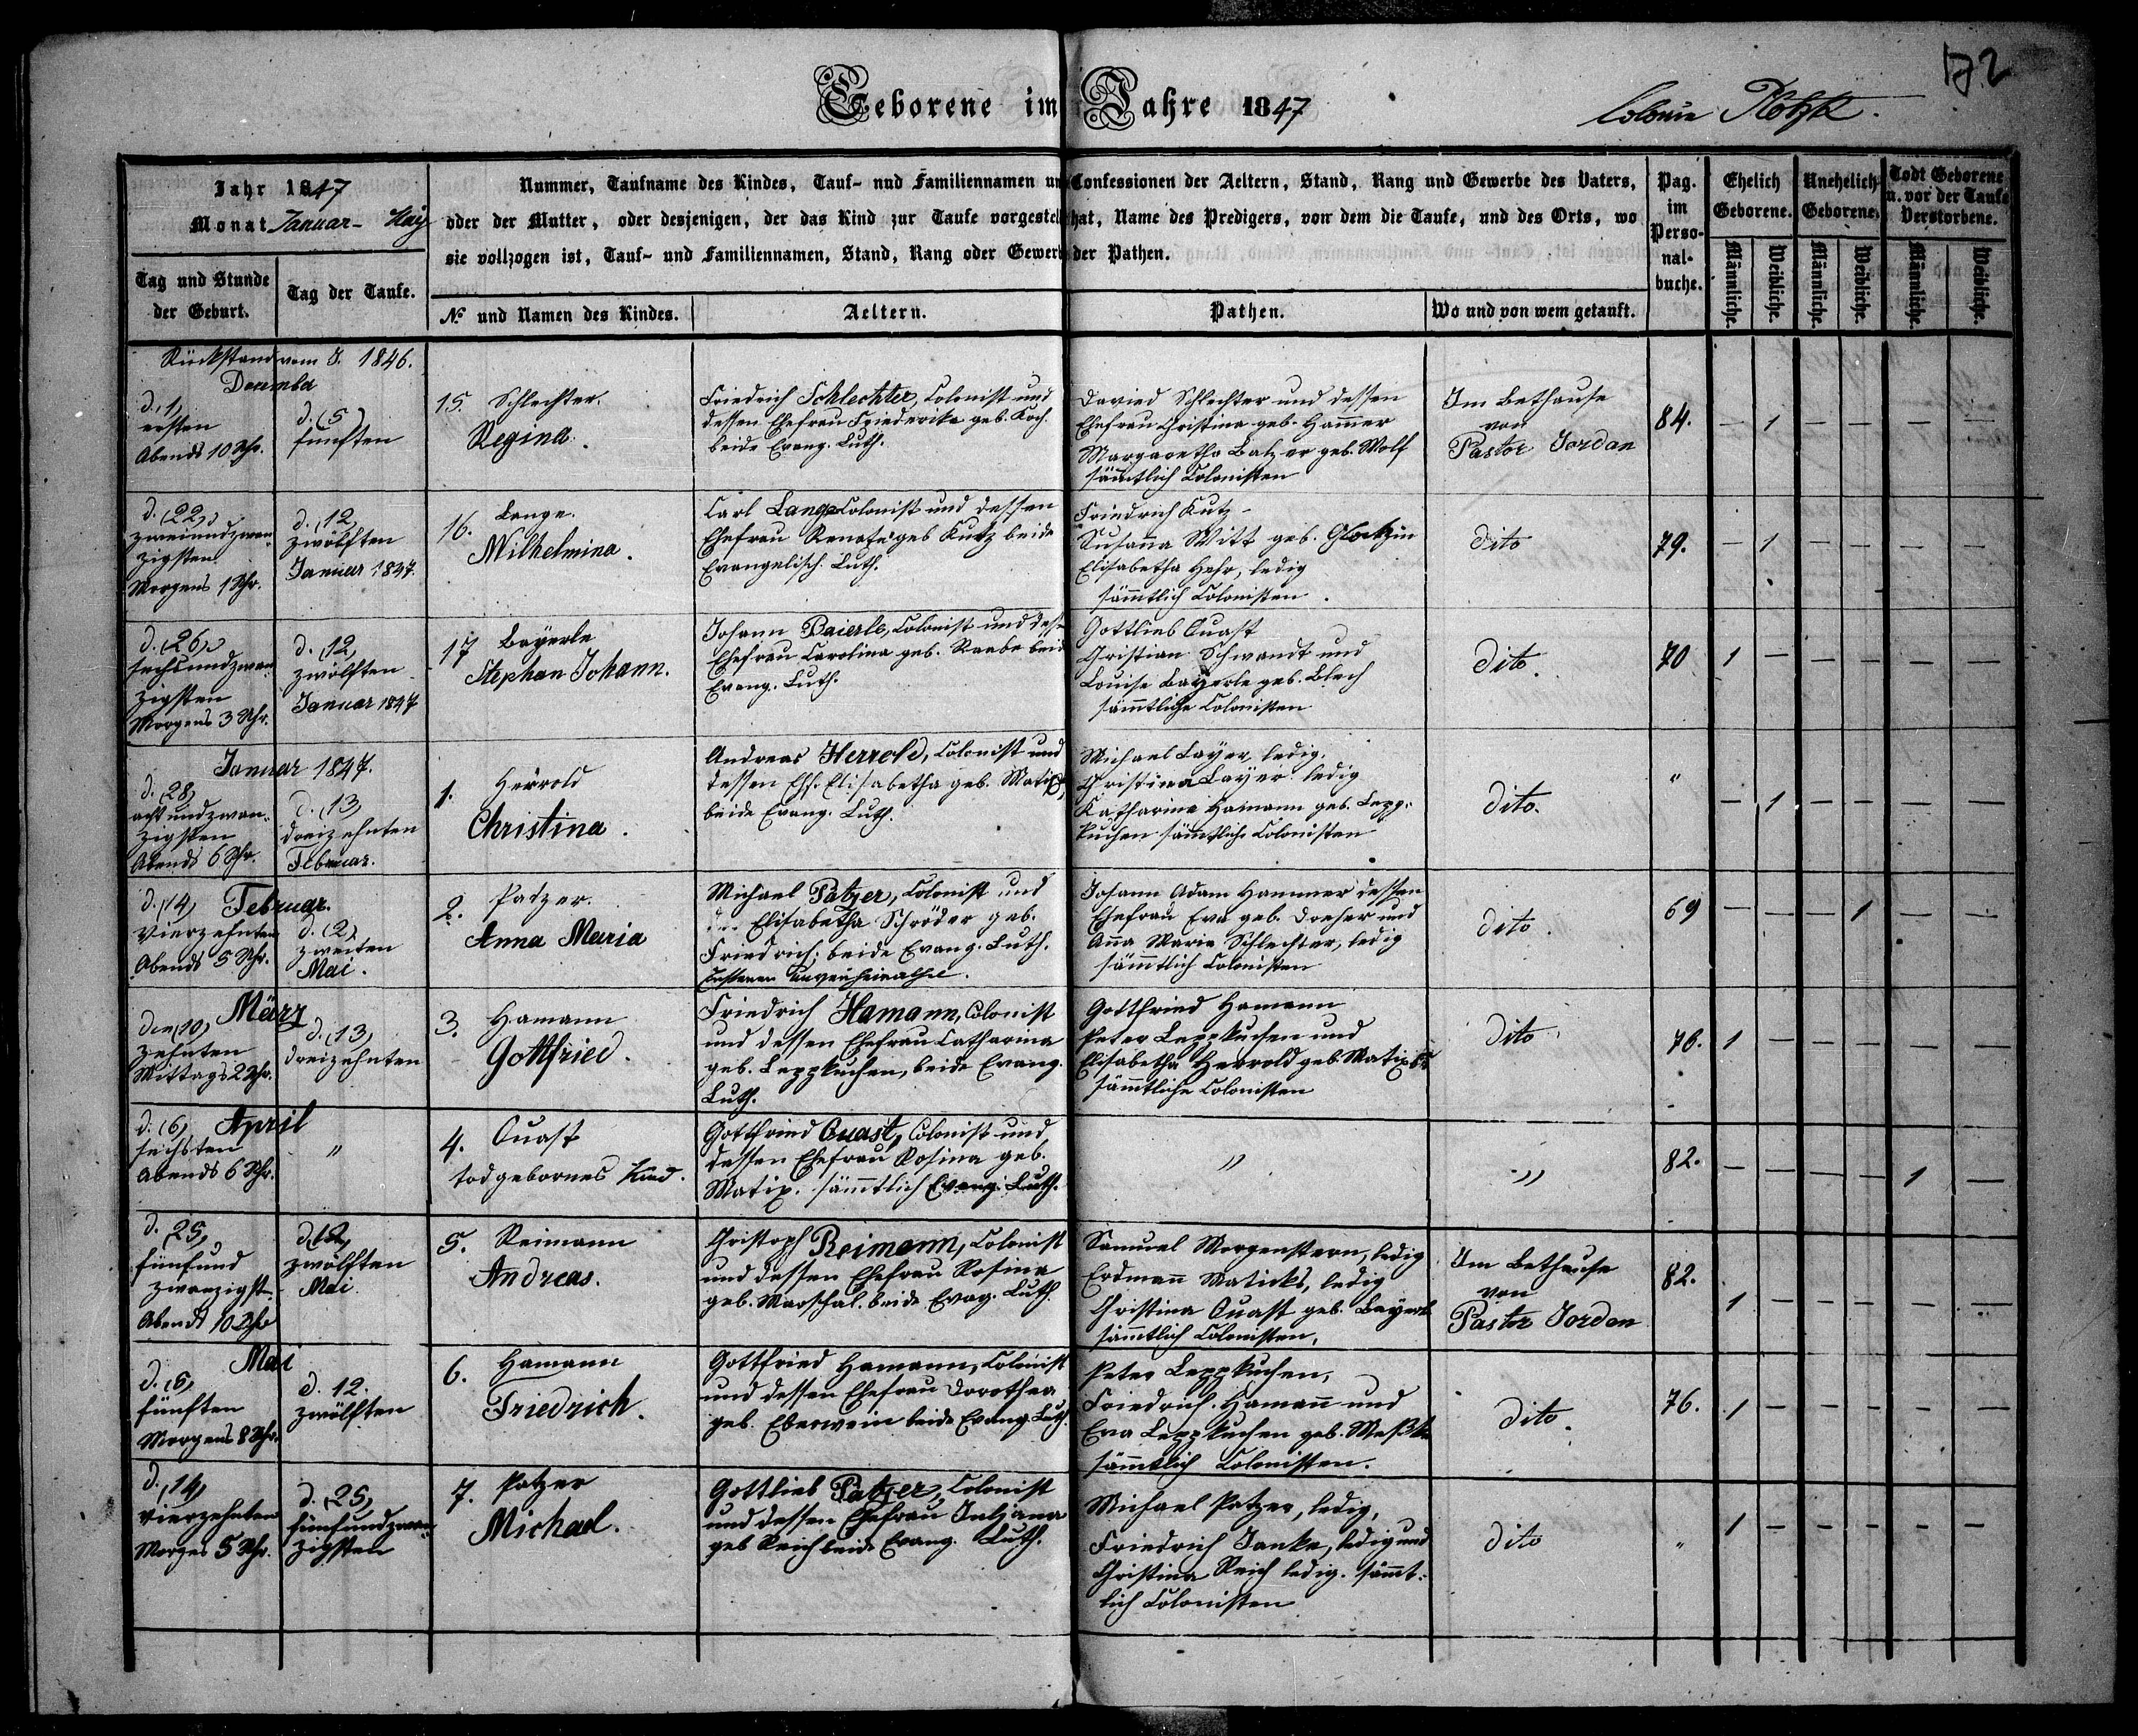 172
Geborene im Jahre 1847
Colonie Plotzk.
Jahr 1847
Monat Januar - May
Nummer, Taufname des Kindes, Tauf- und Familiennamen und Confessionen der Aeltern, Stand, Rang und Gewerbe des Vaters,
oder der Mutter, oder desjenigen, der das Kind zur Taufe vorgestellt hat, Name des Predigers, von dem die Taufe, und des Orts, wo
sie vollzogen ist, Tauf- und Familiennamen, Stand, Rang oder Gewerbe der Pathen.
Pag.
im
Perso-
nal-
buche.
Ehelich
Geborene.
Unehelich
Geborene.
Todt Geborene
u. vor der Taufe
Verstorbene.
Tag und Stunde
der Geburt.
Tag der Taufe.
No. und Namen des Kindes.
Aeltern.
Pathen.
Wo und von wem getauft.
Männliche.
Weibliche.
Männliche.
Weibliche.
Männliche.
Weibliche.
Rückstand vom J. 1846.
December
d. (1)
ersten
Abends 10 Uhr.
d. (5)
fünften
15. Schlechter.
Regina.
Friedrich Schlechter, Colonist und
dessen Ehefrau Friederike geb. Koch.
beide Evang. Luth.
David Schlechter und dessen
Ehefrau Christina geb. Hammer
Margaretha Balzer geb. Wolf
sämtlich Colonisten
Im Bethause
von
Pastor Jordan
84. — 1 — — — —
d. (22)
zweiundzwan-
zigsten
Morgens 1 Uhr.
d. (12
zwölften
Januar 1847.
16. Lange.
Wilhelmina.
Carl Lange Colonist und dessen
Ehefrau Renate geb Kutz beide
Evangelisch. Luth.
Friedrich Kutz -
Susanna Witt geb.
Elisabetha Hehr, ledig
sämmtlich Colonisten.
dito
79. — 1 — — — —
d. (26)
sechsundzwan-
zigsten
Morgens 3 Uhr.
d. (12)
zwölften
Januar 1847
17 Bayerle
Stephan Johann.
Johann Baierle, Colonist und dess
Ehefrau Carolina geb. Raabe beid
Evang. Luth.
Gottlieb Quast
Christian Schwandt und
Louise Bayerle geb. Blech
sämmtliche Colonisten
dito.
70 1 — — — — —
Januar 1847.
d. (28)
achtundzwan-
zigsten
Abends 6 Uhr.
d. (13)
dreizehnten
Februar.
1. Herrold
Christina.
Andreas Herrold, Colonist und
dessen Ehf. Elisabetha geb. Matix,
beide Evang. Luth.
Michael Layer, ledig.
Christina Layer ledig
Katharine Hamann geb. Lepp-
kuchen sämmtliche Colonisten
dito.
" — 1 — — — —
Februar.
d. (14)
Vierzehnten
Abends 5 Uhr.
d. (2)
zweiten
Mai.
2. Patzer.
Anna Maria
Michael Patzer, Colonist und
Elisabetha Schröder geb.
Friedrich; beide Evang. Luth.
Johann Adam Hammer dessen
Ehefrau Eva geb. Dreher und
Anna Maria Schlechter, ledig
sämmtlich Colonisten
dito.
69 — — — 1 — —
März
den (10)
zehnten
Mittags 2 Uhr.
d. (13)
dreizehnten
3. Hamann
Gottfried.
Friedrich Hamann, Colonist
und dessen Ehefrau Catharina
geb. Leppkuchen, beide Evang.
Luth.
Gottfried Hamann
Peter Leppkuchen und
Elisabetha Herrold geb Matix
sämmtliche Colonisten
dito
76. 1 — — — — —
April
d. (6)
sechsten
Abends 6 Uhr.
"
4. Quast
todgebornes Kind.
Gottfried Quast, Colonist und
dessen Ehefrau Rosina geb.
Matix. sämmtlich Evang. Luth.
"
"
82. — — — — 1 —
d. (25)
fünfund
zwanzigst.
Abends 10 Uhr
d. (12)
zwölften
Mai.
5. Reimann
Andreas.
Christoph Reimann, Colonist
und dessen Ehefrau Rosina
geb. Marschal. beide Evag. Luth.
Samuel Morgenstern, ledig
Erdmann Maticks, ledig
Christina Quast geb. Bayerle
sämmtlich Colonisten,
Im Bethause
von
Pastor Jordan
82. 1 — — — — —
Mai
d. (5)
fünften
Morgens 8 Uhr.
d. 12.
zwölften
6. Hamann
Friedrich.
Gottfried Hamann, Colonist
und dessen Ehefrau Dorothea
geb. Eberwein beide Evang. Luth.
Peter Leppkuchen,
Friedrich Hamann und
Eva Leppkuchen geb.
sämmtlich Colonisten.
dito.
76. 1 — — — — —
d. (14)
vierzehnten
Morges 5 Uhr.
d. (25)
fünfundzwan-
zigsten
7. Patzer
Michael.
Gottlieb Patzer, Colonist
und dessen Ehefrau Juliana
geb Reich beide Evang. Luth.
Michael Patzer, ledig,
Friedrich Janke, ledig und
Christina Reich ledig. sämmt-
lich Colonisten
dito
" 1 — — — — —